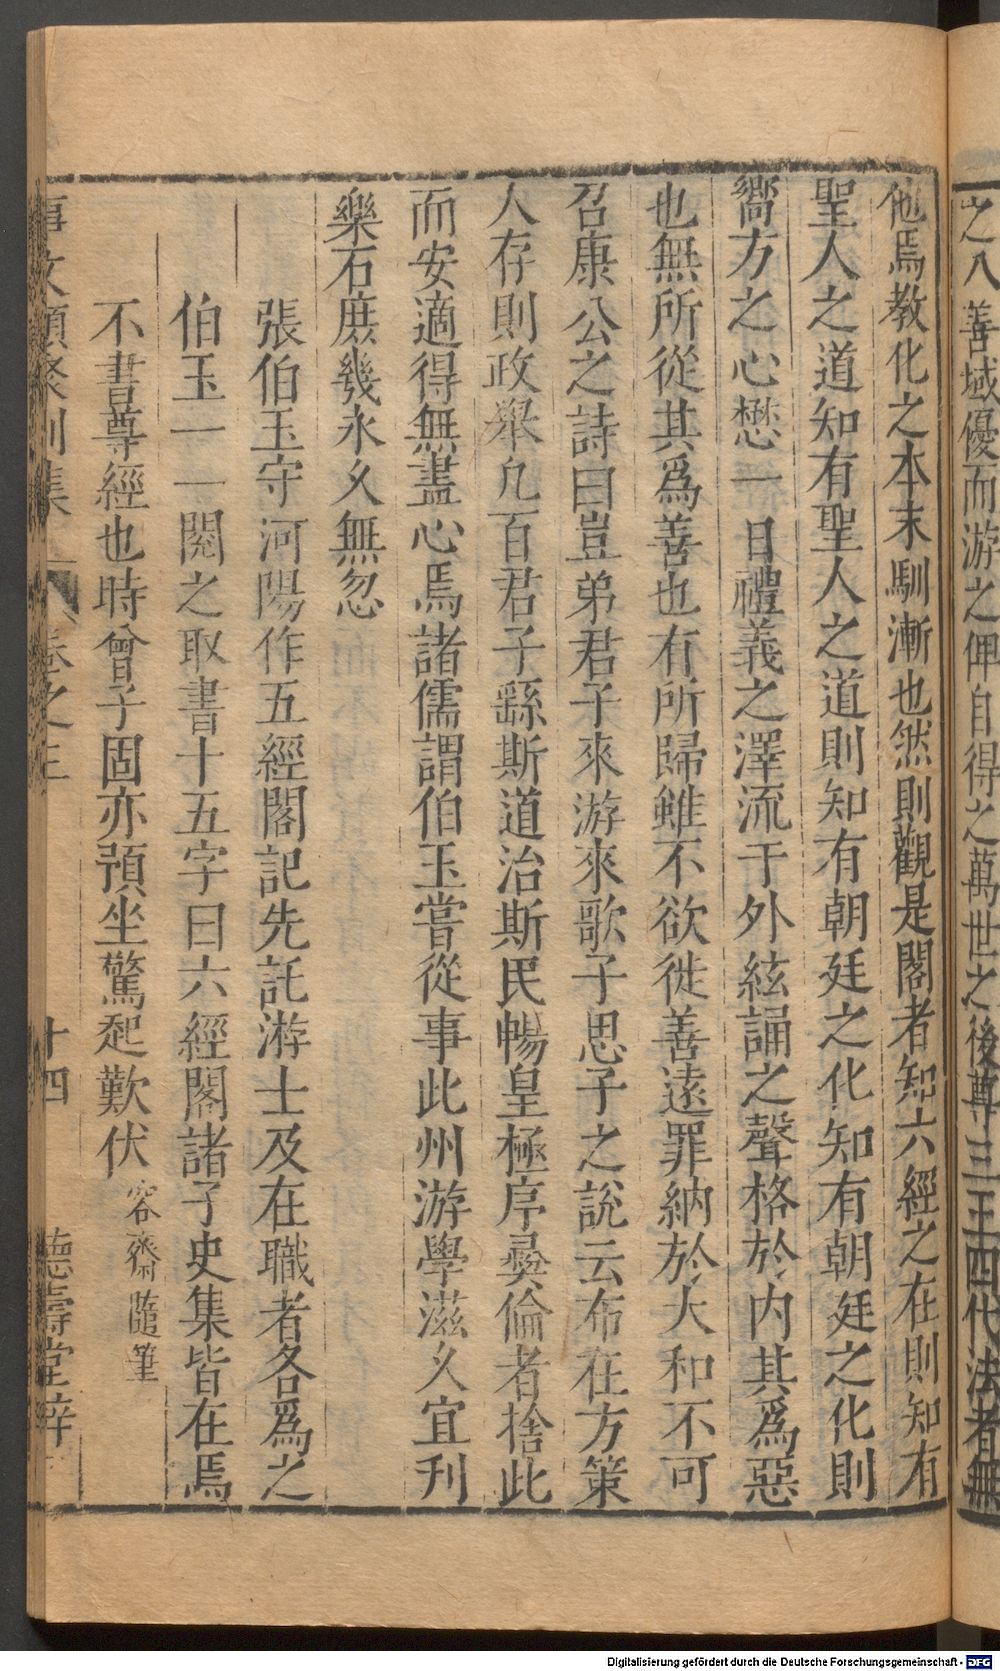 之入善域優而游之俾自得之萬世之後尊三王四代法者無
他焉教化之本末馴漸也然則觀是閣者知六經之在則知有
聖人之道知有聖人之道則知有朝廷之化知有朝廷之化則
嚮方之心懋一日禮義之澤流于外絃誦之聲格於內其爲惡
也無所從其爲善也有所歸雖不欲徙善遠罪納於大和不可
召康公之詩曰豈弟君子來游來歌子思子之說云布在方策
人存則政舉凢百君子繇斯道治斯民暢皇極序彝倫者捨此
而安適得無盡心焉諸儒謂伯玉嘗從事此州游學滋乆宜刋
樂石庶幾永乆無忽
張伯玉守河陽作五經閣記先託游士及在職者各爲之
伯玉一一閱之取書十五字曰六經閣諸子史集皆在焉
不書尊經也時曾子固亦預坐驚起歎伏容齋隨筆
事文類聚別集 卷之三 十四 德壽堂梓
Digitalisierung gefördert durch die Deutsche Forschungsgemeinschaft - DFG